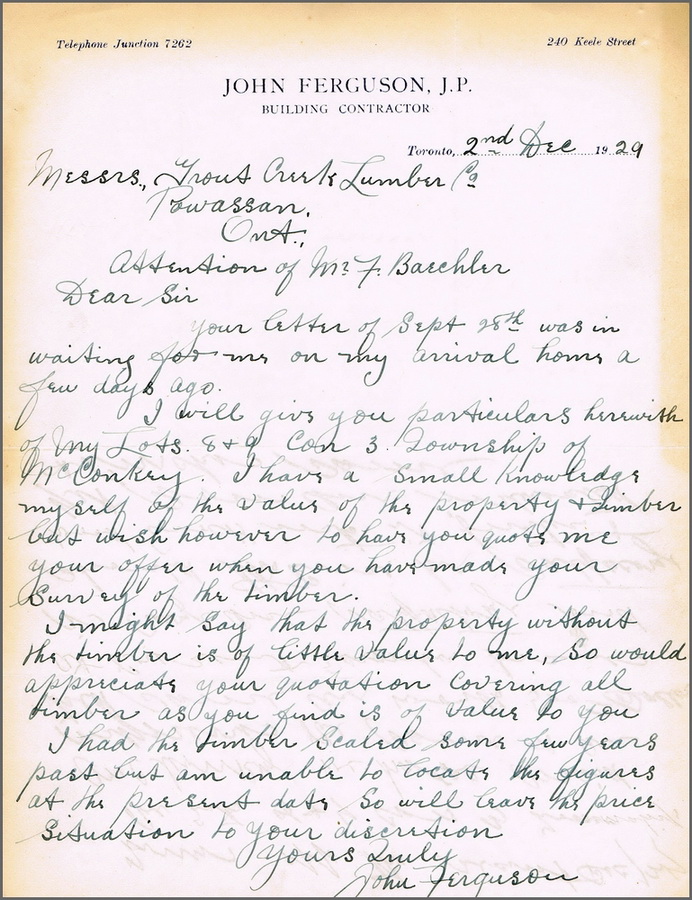 Telephone Junction 7262
240 Keele Street
JOHN FERGUSON, J.P.
BUILDING CONTRACTOR
Toronto, 2nd Dec 1929
Messrs., Trout Creek Lumber Co
Powassan,
Ont.,
Attention of Mr. F. Baechler
Dear Sir
Your letter of Sept 28th was in
waiting for me on my arrival home a
few days ago.
I will give you particulars herewith
of my Lots. 8+9 Con 3. Township of
McConkey. I have a small knowledge
myself of the value of the property + timber
but wish however to have you quote me
your offer when you have made your
survey of the timber.
I might say that the property without
the timber is of little value to me, so would
appreciate your quotation covering all
timber as you find is of value to you
I had the timber scaled some few years
past but am unable to locate the figures
at the present date so will leave the price
situation to your discretion
Yours Truly
John Ferguson